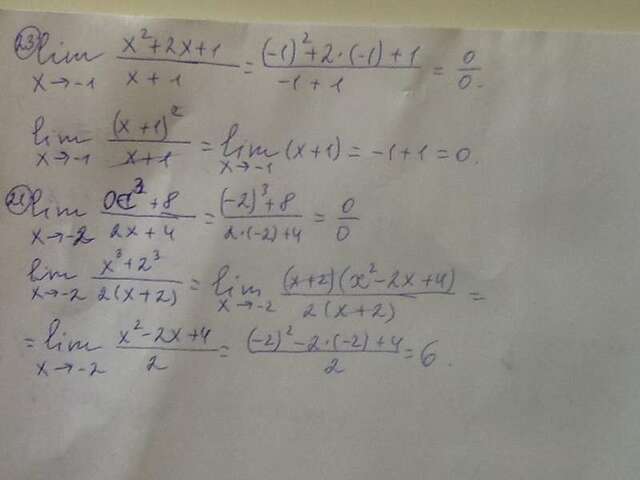 23) lim x→-1 (x²+2x+1)/(x+1) = ((-1)²+2·(-1)+1)/(-1+1) = 0/0.
lim x→-1 (x+1)²/(x+1) = lim x→-1 (x+1) = -1+1 = 0.
lim x→-2 (x³+8)/(2x+4) = ((-2)³+8)/(2·(-2)+4) = 0/0
lim x→-2 (x³+2³)/(2(x+2)) = lim x→-2 ((x+2)(x²-2x+4))/(2(x+2)) =
= lim x→-2 (x²-2x+4)/2 = ((-2)²-2·(-2)+4)/2 = 6.